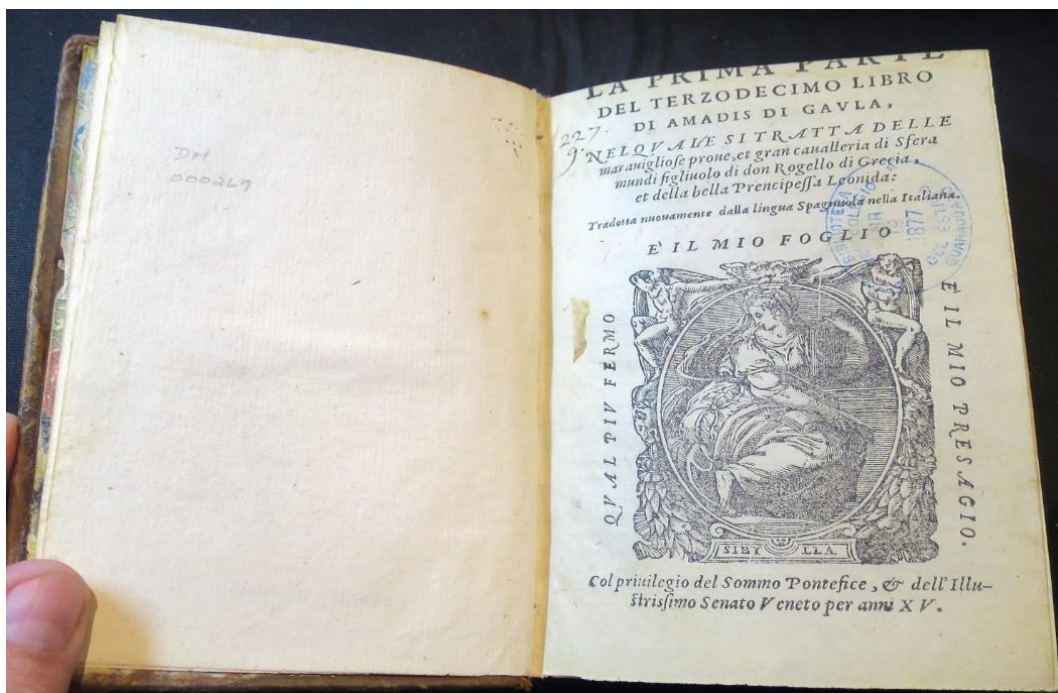 DM
000269
227.
9
LA PRIMA PARTE
DEL TERZODECIMO LIBRO
DI AMADIS DI GAVLA,
NEL QVALE SI TRATTA DELLE
marauigliose proue, et gran caualleria di Sfera
mundi figliuolo di don Rogello di Grecia,
et della bella Prencipessa Leonida:
Tradotta nuouamente dalla lingua Spagnuola nella Italiana.
E' IL MIO FOGLIO
QVAL PIV FERMO
E' IL MIO PRESAGIO.
SIBYLLA.
Col priuilegio del Sommo Pontefice, & dell'Illu-
strissimo Senato Veneto per anni XV.
BIBLIOTECA
1877
DEL ESTADO
GUANAJUATO